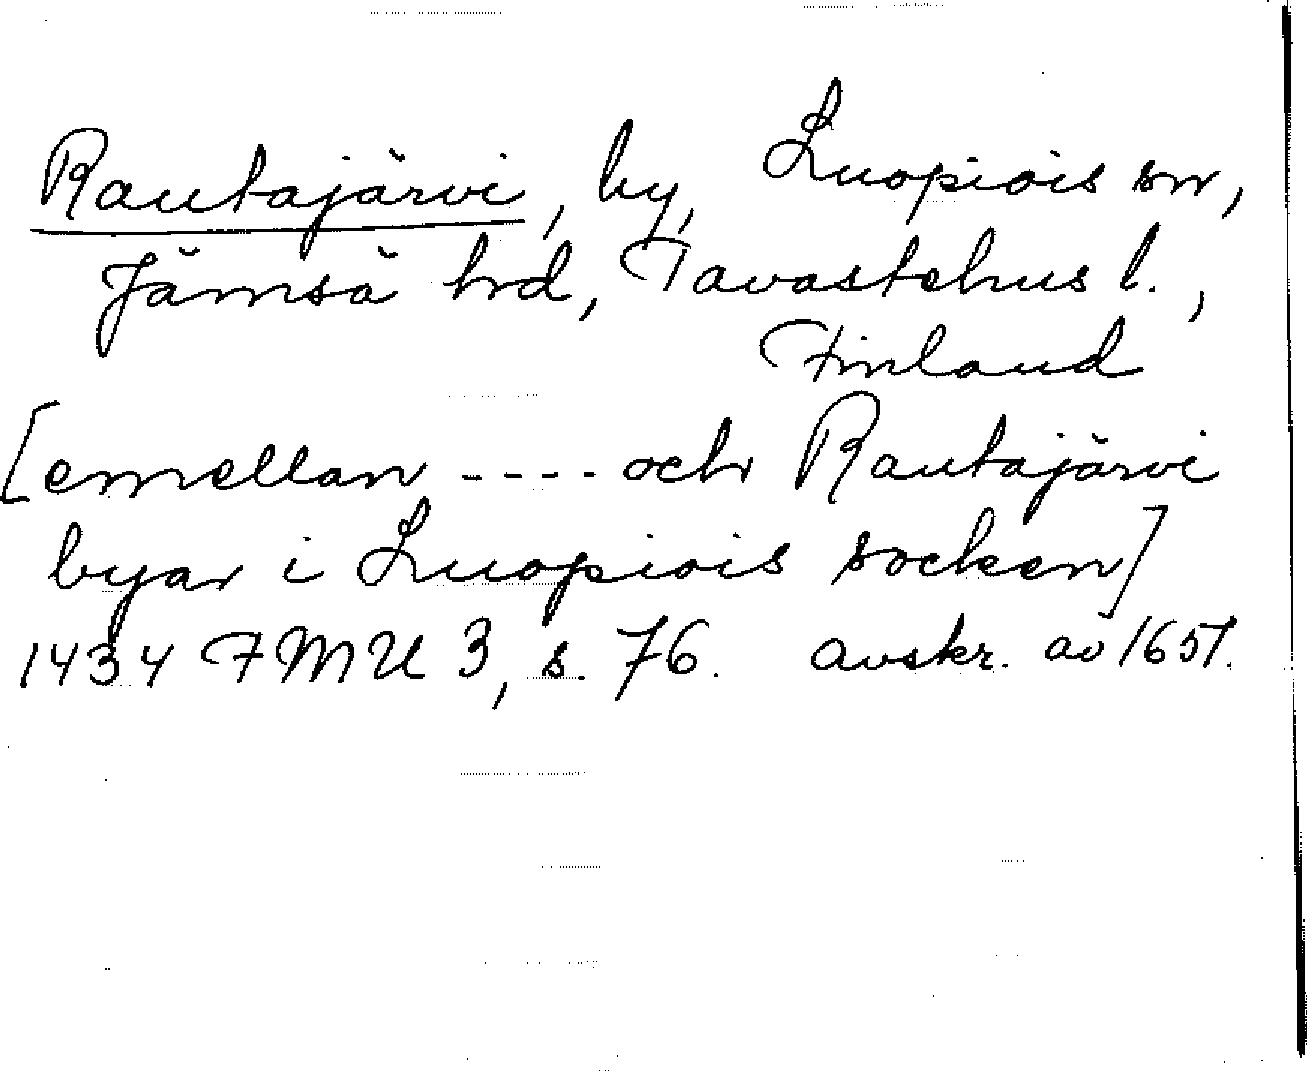 Rautajärvi, by, Luopiois sn,
Jämsä hd, Tavastehus l.,
Finland
[emellan ---- och Rautajärvi
byar i Luopiois socken]
1434 FMU 3, s. 76. avskr. av 1651.